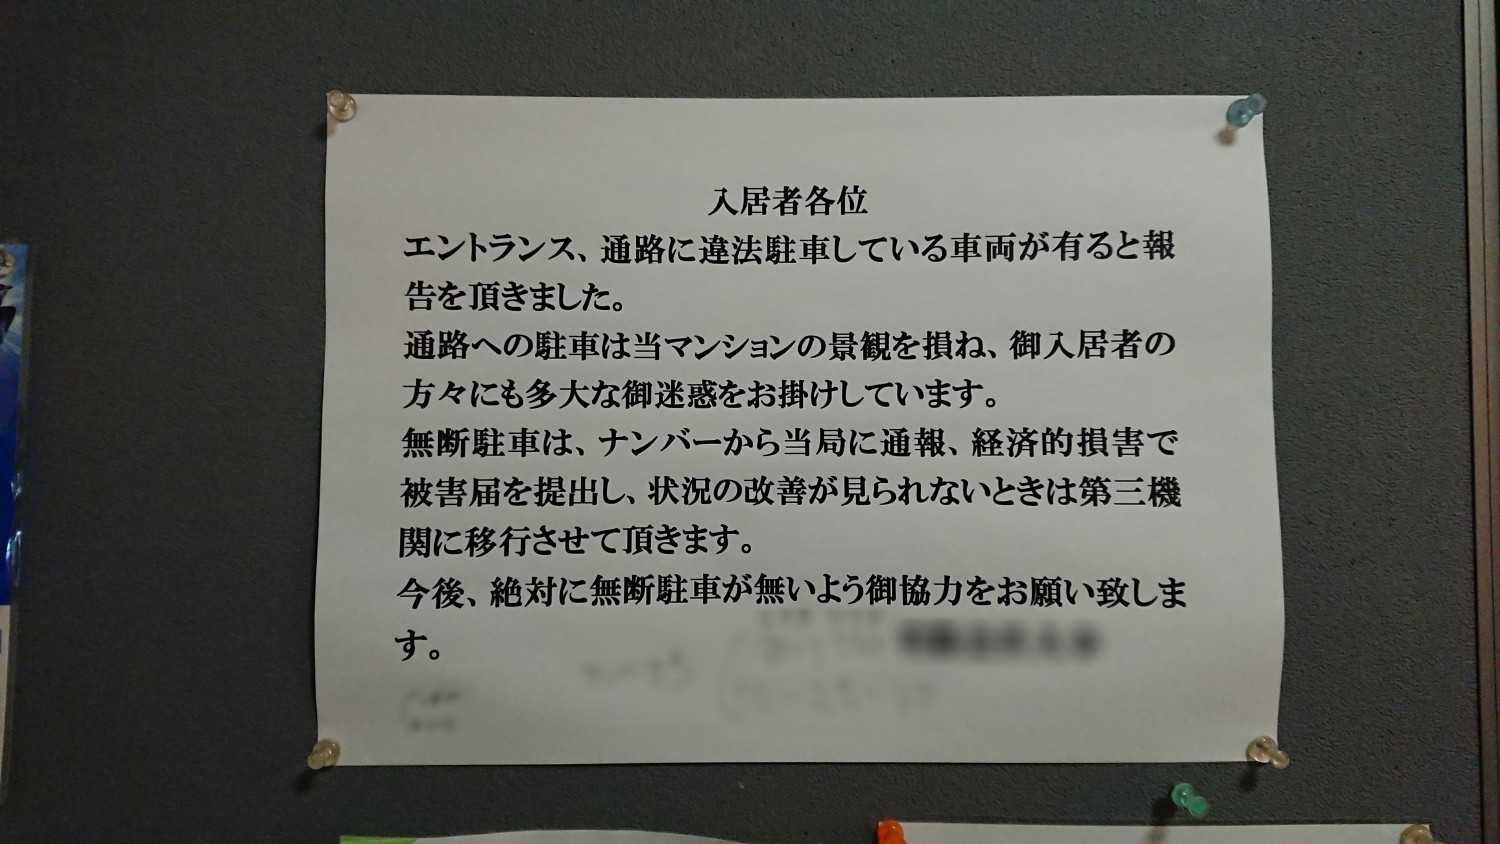 入居者各位
エントランス、通路に違法駐車している車両が有ると報
告を頂きました。
通路への駐車は当マンションの景観を損ね、御入居者の
方々にも多大な御迷惑をお掛けしています。
無断駐車は、ナンバーから当局に通報、経済的損害で
被害届を提出し、状況の改善が見られないときは第三機
関に移行させて頂きます。
今後、絶対に無断駐車が無いよう御協力をお願い致しま
す。